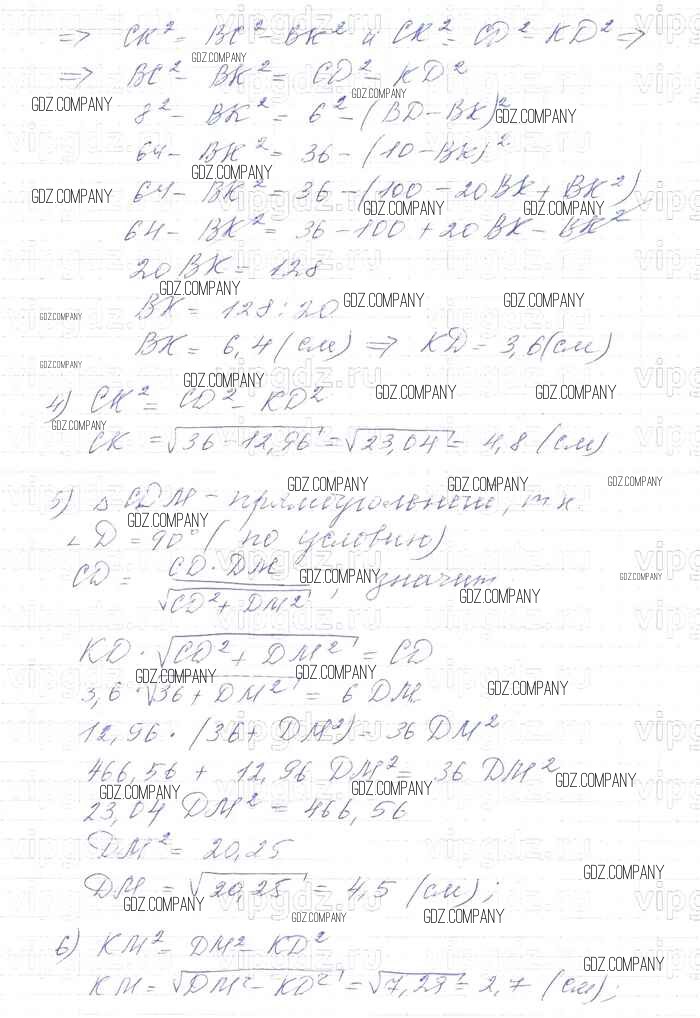 => CK² = BC² - BK² и CK² = CD² - KD² =>
=> BC² - BK² = CD² - KD²
8² - BK² = 6² - (BD - BK)²
64 - BK² = 36 - (10 - BK)²
64 - BK² = 36 - (100 - 20BK + BK²)
64 - BK² = 36 - 100 + 20BK - BK²
20BK = 128
BK = 128 : 20
BK = 6,4 (см) => KD = 3,6 (см)
4) CK² = CD² - KD²
CK = √36 - 12,96 = √23,04 = 4,8 (см)
5) △ CDM - прямоугольные, т.к.
∠D = 90° (по условию)
CD = CD · DM / √CD² + DM², значит
KD · √CD² + DM² = CD
3,6 · √36 + DM² = 6 DM
12,96 · (36 + DM²) = 36 DM²
466,56 + 12,96 DM² = 36 DM²
23,04 DM² = 466,56
DM² = 20,25
DM = √20,25 = 4,5 (см);
6) KM² = DM² - KD²
KM = √DM² - KD² = √7,29 = 2,7 (см);
GDZ.COMPANY
vipgdz.ru